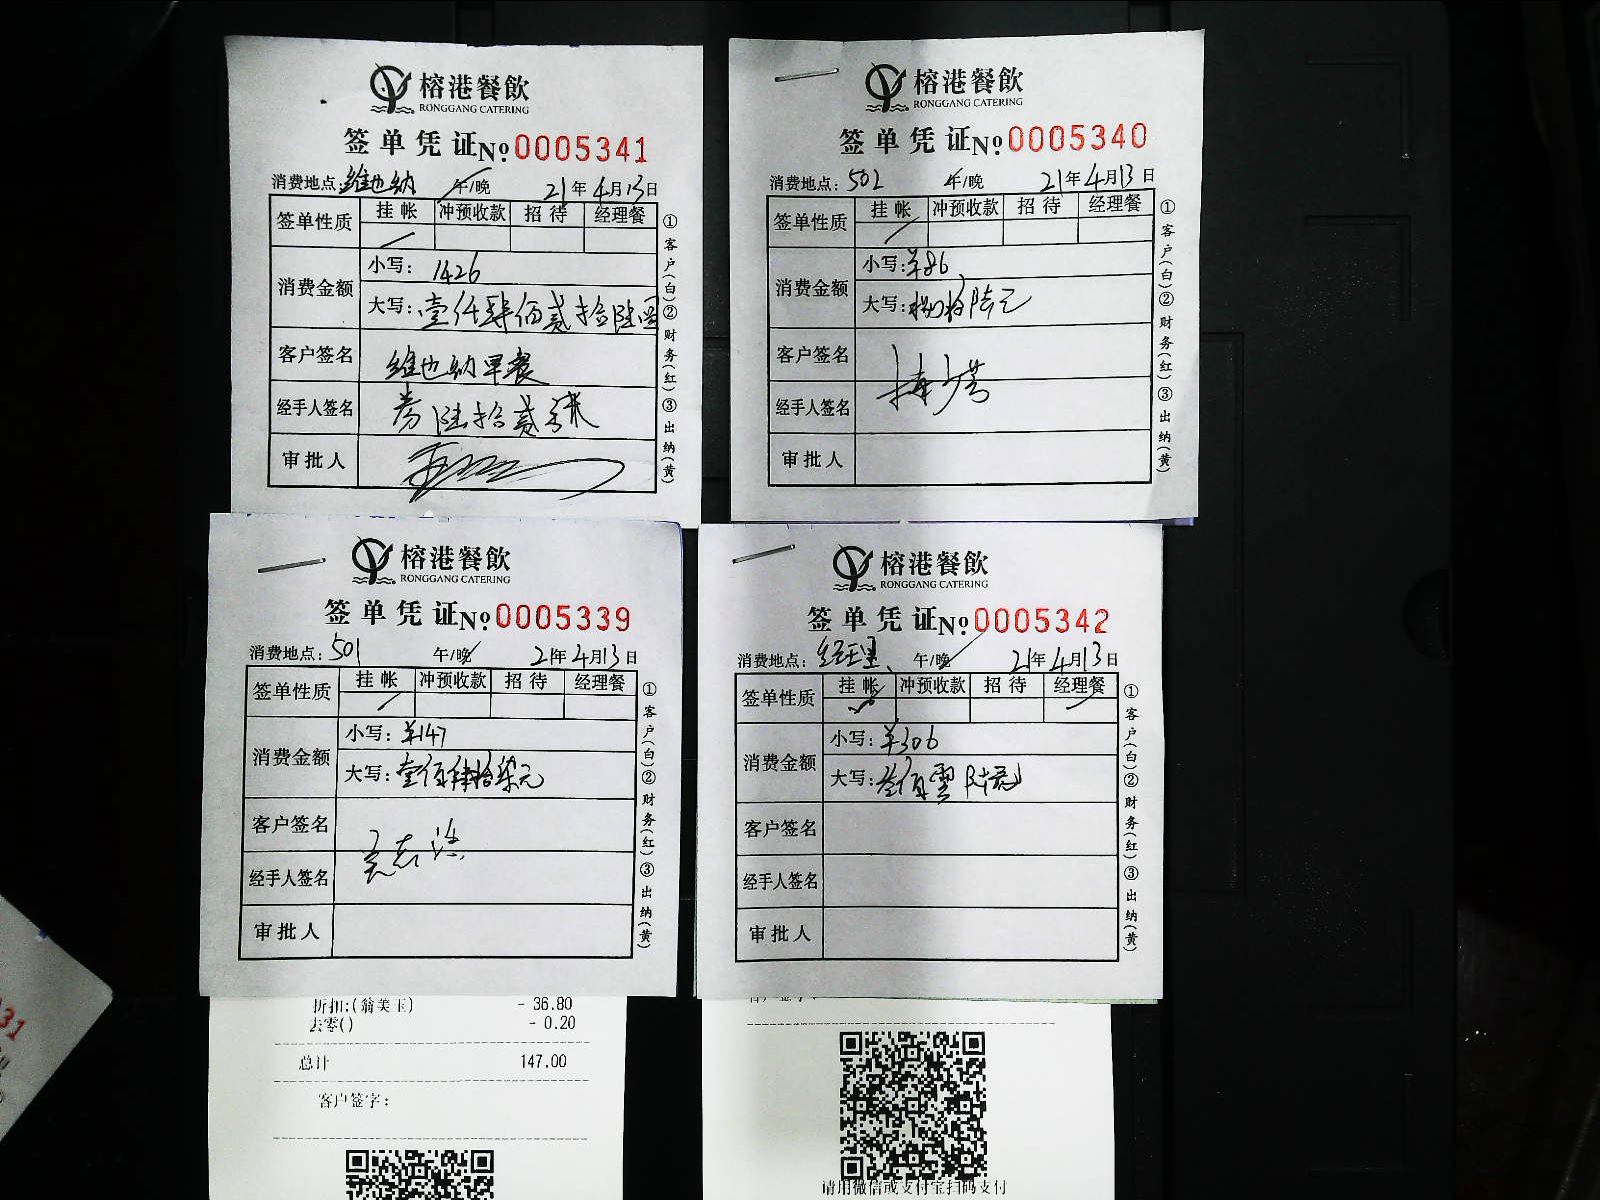 榕港餐飲
RONGGANG CATERING
签单凭证No 0005341
消费地点:维也纳 午/晚 21年4月13日
签单性质 挂帐 冲预收款 招待 经理餐
消费金额 小写: 1426
大写:壹仟肆佰贰拾陆圆
客户签名 维也纳早餐
经手人签名 券陆拾贰张
审批人
①客户(白)②财务(红)③出纳(黄)
榕港餐飲
RONGGANG CATERING
签单凭证No 0005340
消费地点:502 午/晚 21年4月13日
签单性质 挂帐 冲预收款 招待 经理餐
消费金额 小写:¥86
大写:捌拾陆元
客户签名
经手人签名
审批人
①客户(白)②财务(红)③出纳(黄)
榕港餐飲
RONGGANG CATERING
签单凭证No 0005339
消费地点:501 午/晚 21年4月13日
签单性质 挂帐 冲预收款 招待 经理餐
消费金额 小写:¥147
大写:壹佰肆拾柒元
客户签名
经手人签名
审批人
①客户(白)②财务(红)③出纳(黄)
折扣:(翁美玉) - 36.80
去零() - 0.20
总计 147.00
客户签字:
榕港餐飲
RONGGANG CATERING
签单凭证No 0005342
消费地点:经理 午/晚 21年4月13日
签单性质 挂帐 冲预收款 招待 经理餐
消费金额 小写:¥306
大写:叁佰零陆元
客户签名
经手人签名
审批人
①客户(白)②财务(红)③出纳(黄)
请用微信或支付宝扫码支付
31